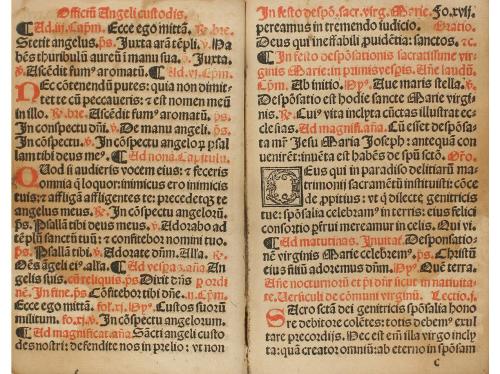 Officiũ Angeli custodis.
¶ Ad.iij.Capm. Ecce ego mittã. ℞.bre.
Stetit angelus. ps. Juxta arã tẽpli. ℣. Ha
bẽs thuribulũ aureũ ĩ manu sua. ꝟ. Juxta.
℣. Ascẽdit fum⁹ aromatũ. ¶ Ad.vj.Cpm.
Nec cõtenendũ putes: quia non dimit-
tet te cũ peccaueris: ⁊ est nomen meũ
in illo. ℞.bre. Ascẽdit fum⁹ aromatũ. ps.
In conspectu dñi. ℣. De manu angeli. ps.
In cõspectu angeloꝝ. ℣. In cõspectu angeloꝝ psal
lam tibi deus me⁹. ¶ Ad nonã. Capitulũ.
Quod si audieris vocem eius: ⁊ feceris
omnia q̃ loquor: inimicus ero inimicis
tuis: ⁊ affligã affligentes te: precedetqꝫ te
angelus meus. ℞. In cõspectu angeloꝝũ.
ps. Psallã tibi deus meus. ℣. Adorabo ad
tẽplũ sanctũ tuũ: ⁊ confitebor nomini tuo.
ps. Psallã tibi. ℣. Adorate dñm. Alla. ℞.
Oẽs ãgeli ei⁹. alla. ¶ Ad vespã⁹. aña. An
gelis suis. cũ reliquis. ps. Dixit dñs ꝑ ordi
nẽ. In fine. ps. Cõfitebor tibi dñe. ij. Cpm.
Ecce ego mittã. fol.xj. ℣ps. Custos tuorũ
militum. fo.xj. ℣. In cõspectu angelorum.
¶ Ad magnificat. aña. Sãcti angeli custo
des nostri: defendite nos in prelio: vt non
In festo despõ. sacr. virg. Marie. Fo.xvij.
pereamus in tremendo iudicio. Oratio.
Deus qui ineffabili ꝓuidẽtia: sanctos. ⁊c.
¶ In festo despõsationis sacratissime vir
ginis Marie: in primis vespis. Añe laudũ.
Cpm. Ab initio. ℣ps. Aue maris stella. ℣.
Despõsatio est hodie sancte Marie virgi
nis. ℞. Cui⁹ vita inclyta cũctas illustrat ec
clesias. Ad magnifi.aña. Cũ esset despõsa
ta mr̃ Jesu Maria Joseph: antequã con
uenirẽt: inuẽta est habẽs de spũ sctõ. Oro.
Deus qui in paradiso delitiarũ ma
trimonij sacramẽtũ instituisti: cõce
de. ꝓpitius: vt q̃ dilectẽ genitricis
tue: spõsalia celebram⁹ in terris: eius felici
consortio ꝑfrui mereamur in celis. Qui vi.
¶ Ad matutinas. Inuitat. Desponsatio-
nẽ virginis Marie celebrem⁹. ps. Christũ
eius filiũ adoremus dñm. ℣ps. Quẽ terra.
Añe nocturnorũ et ps dñr sicut in natiuita
te. Versiculi de cõmuni virginũ. Lectio.j.
Sacro sctã dei genitricis spõsalia hono
re debitore colẽtes: totis debem⁹ exul
tare precordijs. Nec est eñĩ illa virgo incly
ta: quã creator omniũ: ab eterno in spõsam
c